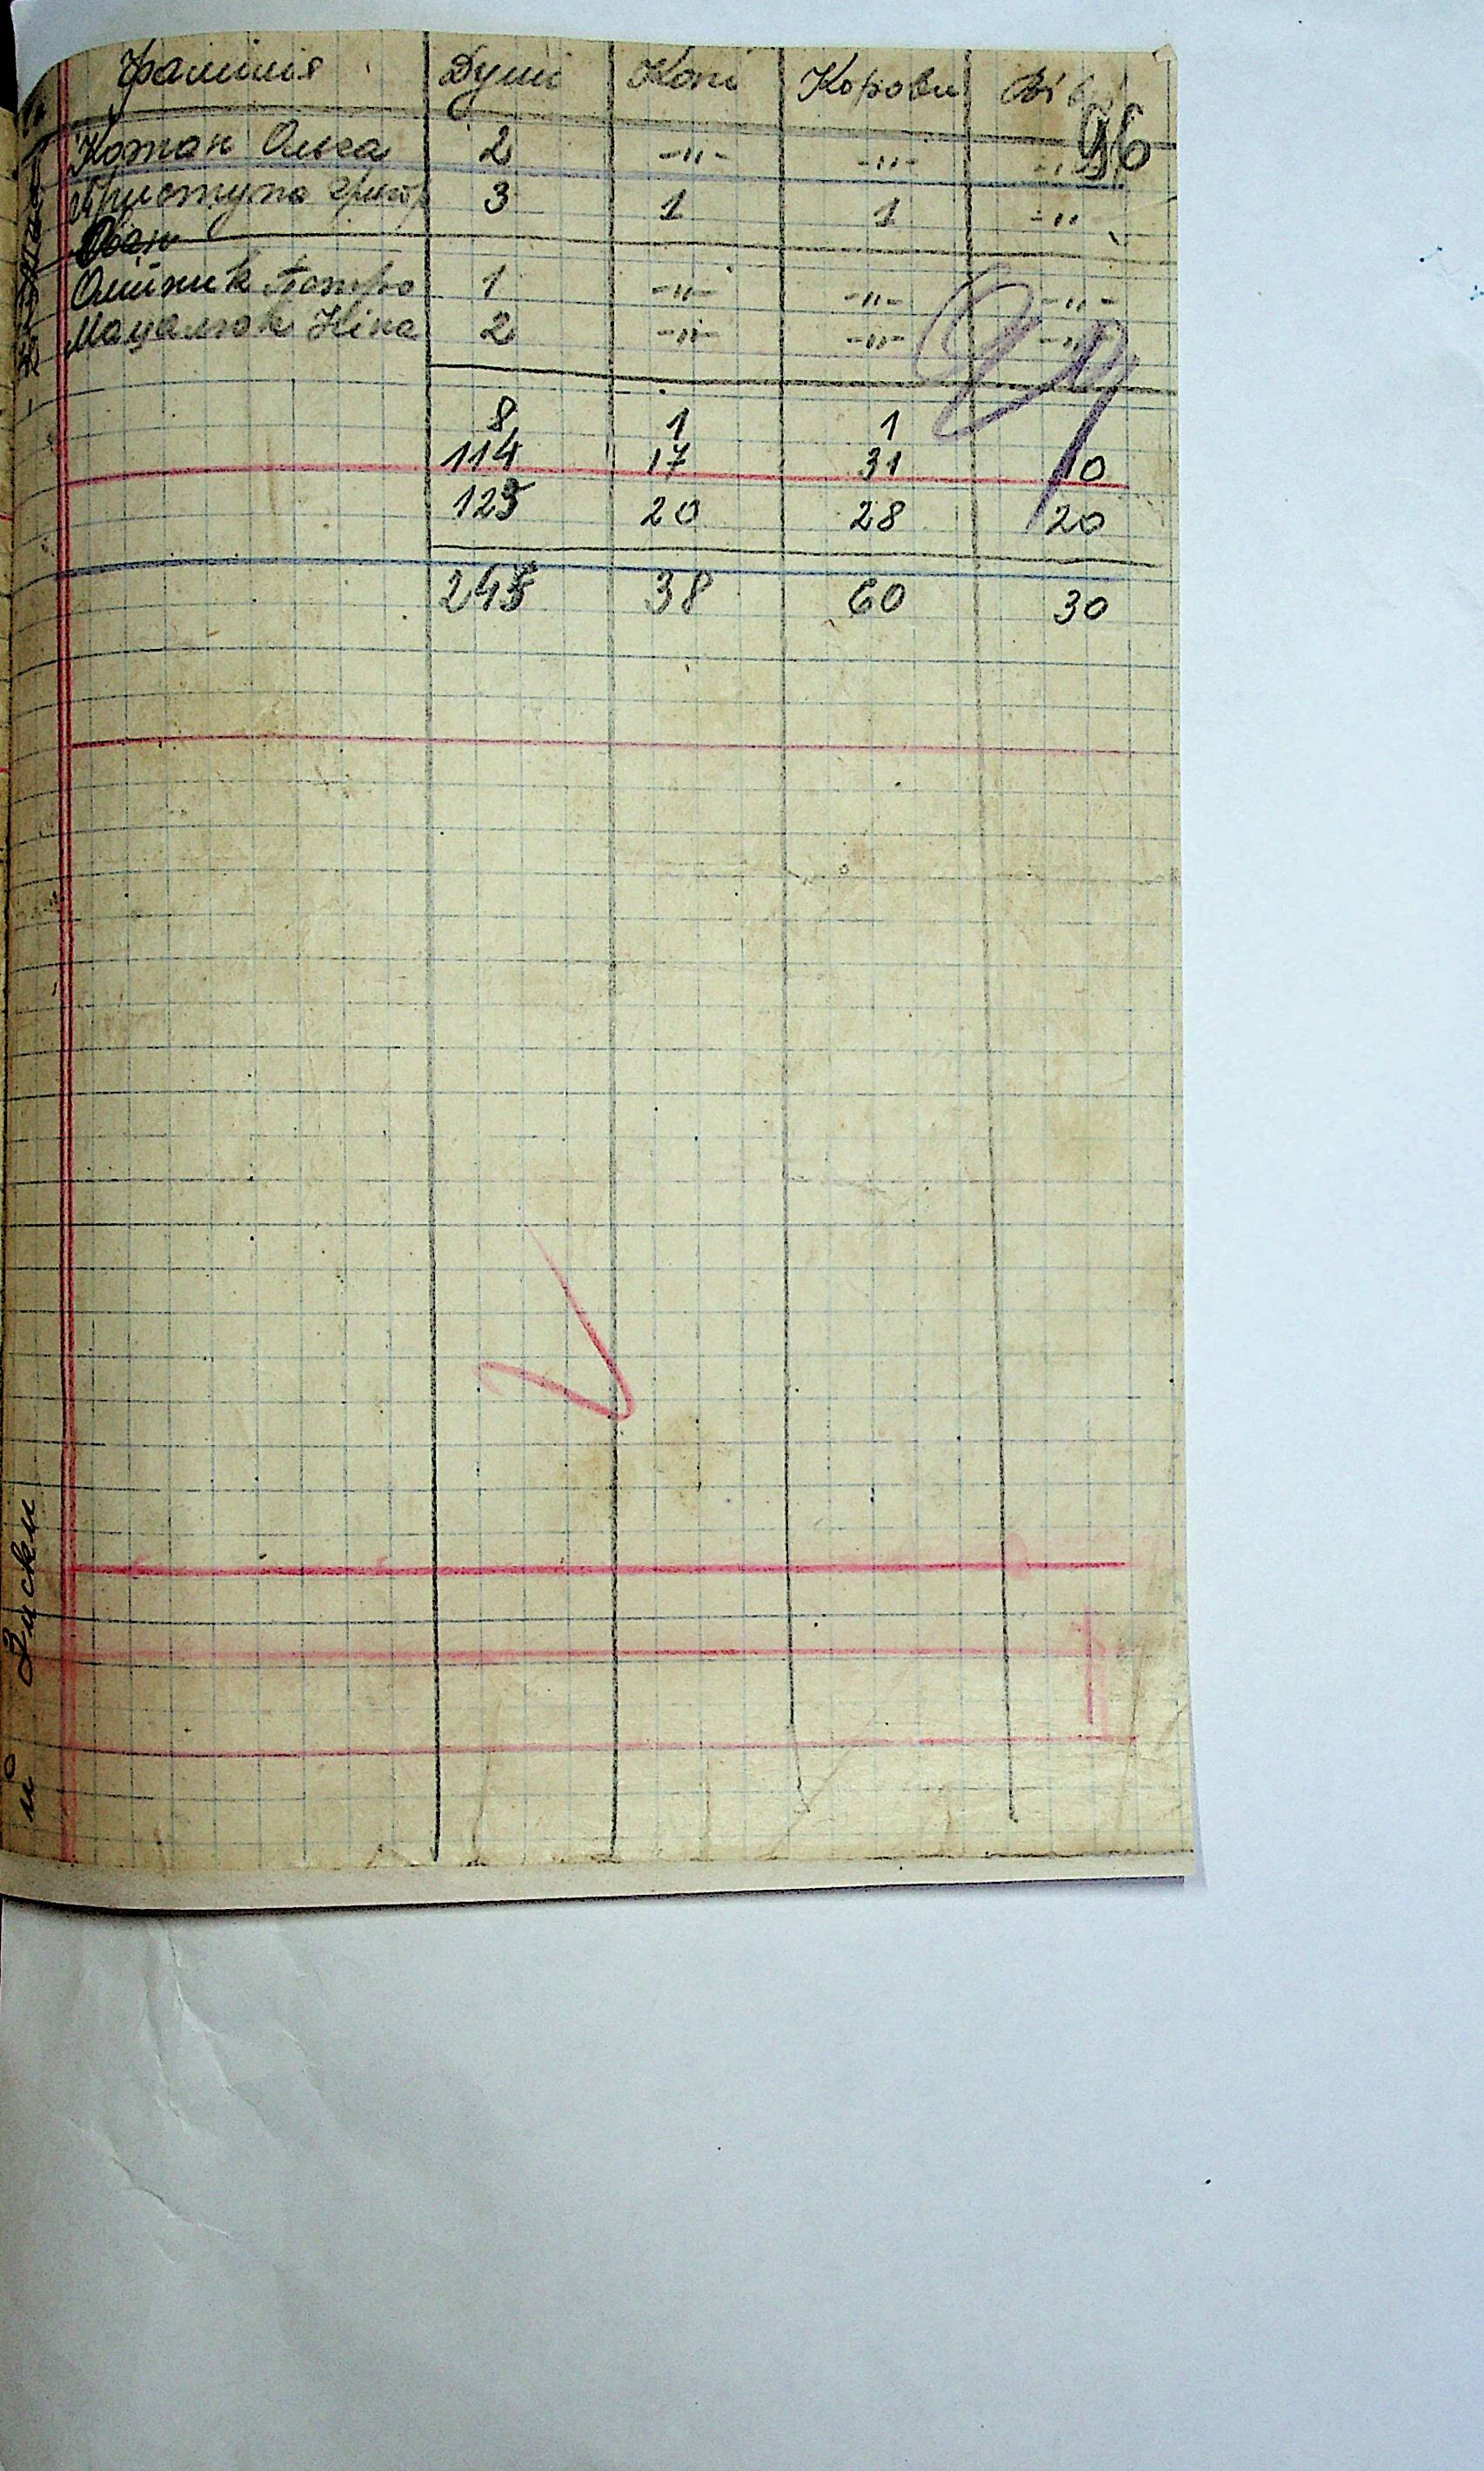 Фамилія Душі Коні Корови Вів
96
Котан Ольга 2 -"- -"- -"-
Приступа Григор 3 1 1 -"-
Олійник Петро 1 -"- -"- -"-
Мацалак Ніна 2 -"- -"- -"-
8 1 1
114 17 31 10
123 20 28 20
245 38 60 30
Зиски
й